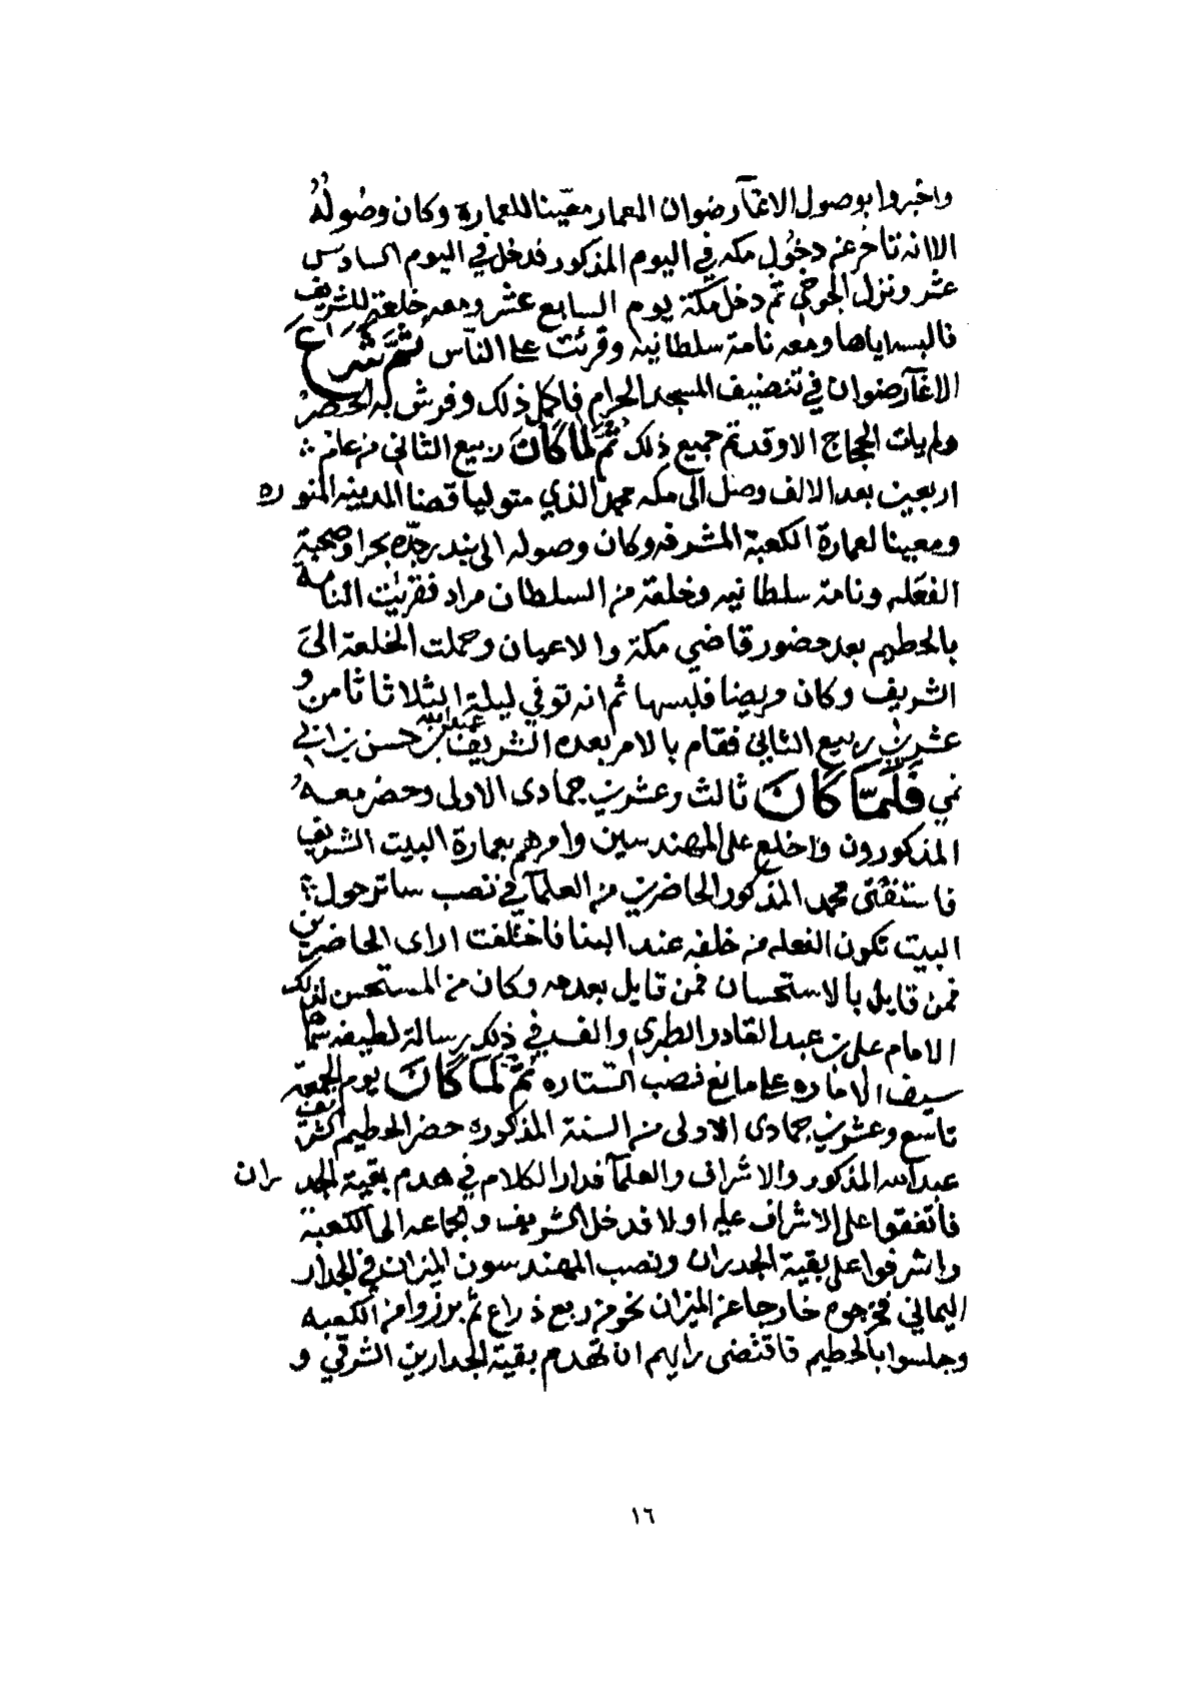 واخبروا بوصول الاغآ رضوان المعمار معيّنا للعمارة وكان وصُولُهُ
الا انه تاخر عن دخُول مكه في اليوم المذكور فدخل في اليوم السادس
عشر ونزل الجوخي ثم دخل مكة يوم السابع عشر ومعه خلعة للشريف
فالبسه اياها ومعه نامة سلطانيه وقرئت على النّاس ثُمَّ شَرَعَ
الاغآ رضوان في تنضيف المسجد الحرام فاكمل ذلك وفرش به الحصرُ
ولم يات الحجاج الا وقد تم جميع ذلك ثُمَّ لمَا كَانَ ربيع الثاني من عام
اربعين بعد الالف وصل الى مكه محمد الذي متوليا قضا المدينه المنوره
ومعينا لعمارة الكعبة المشرفه وكان وصوله الى بندر جدّه بحرا وصحبة
الفعَله ونامة سلطانيه وخلعة من السلطان مراد فقريت النامه
بالحطيم بعد حضور قاضي مكة والاعيان وحملت الخلعة الىَ
الشريف وكان مريضا فلبسها ثم انه توفي ليلة الثلاثا ثامن و
عشرين ربيع الثاني فقام بالامر بعده الشريف عبدالله بن حسن بن ابي
نمي فَلَمّا كَانَ ثالث وعشرين جمادى الاولى وحضر معهُ
المذكورون واخلع على المهندسين وامرهم بعمارة البيت الشريف
فاستفتى محمد المذكور الحاضرين من العلمآ في نصب ساتر حول
البيت تكون الفعله من خلفه عند البنا فاختلفت اراى الحاضرين
فمن قايل بالاستحسان فمن قايل بعدمه وكان من المستحسن لذلك
الامام على بن عبد القادر الطبري والف في ذلك رسالة لطيفه سماها
سيف الاماره على مانع نصب الستاره ثُمَّ لمَا كَانَ يوم الجمعة
تاسع وعشرين جمادى الاولى من السنة المذكوره حضر الحطيم الشريف
عبدالله المذكور والاشراف والعلمآ فدار الكلام في هدم بقية الجدران
فاتفقوا على الاشراف عليه اولا فدخل الشريف والجماعه الى الكعبة
واشرفوا على بقية الجدران ونصب المهندسون الميزان في الجدار
اليماني فخرجوه خارجا عن الميزان نحو من ربع ذراع ثم برزوا من الكعبه
وجلسوا بالحطيم فاقتضى رايهم ان تهدم بقية الجدارين الشرقي و
١٦